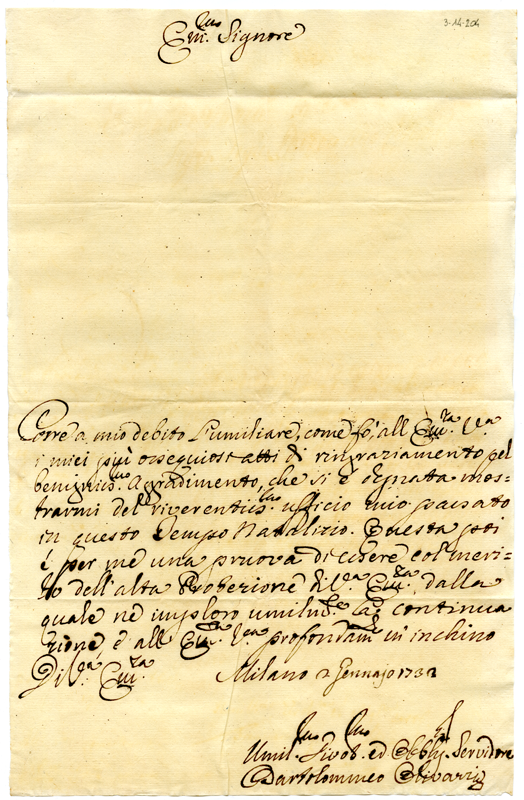 3-14-204
Em.mo Signore
Corre a mio debito l'umiliare, come fò, all'Em.za V.ra
i miei più ossequiosi atti di ringraziamento pel
benignis.mo agradimento, che si è degnata mos-
trarmi del riverentis.mo ufficio mio passato
in questo Tempo Natalizio. Questa poi
è per me una pruova di essere col meri-
to dell'alta Protezione di V.ra Em.za, dalla
quale ne imploro umilm.te la continua
zione, e all'Em.za V.ra profondam.te m'inchino
Di V.ra Em.za
Milano 2 Gennajo 1732
Umil.mo Divot.mo ed Obblig. Servidore
Bartolommeo